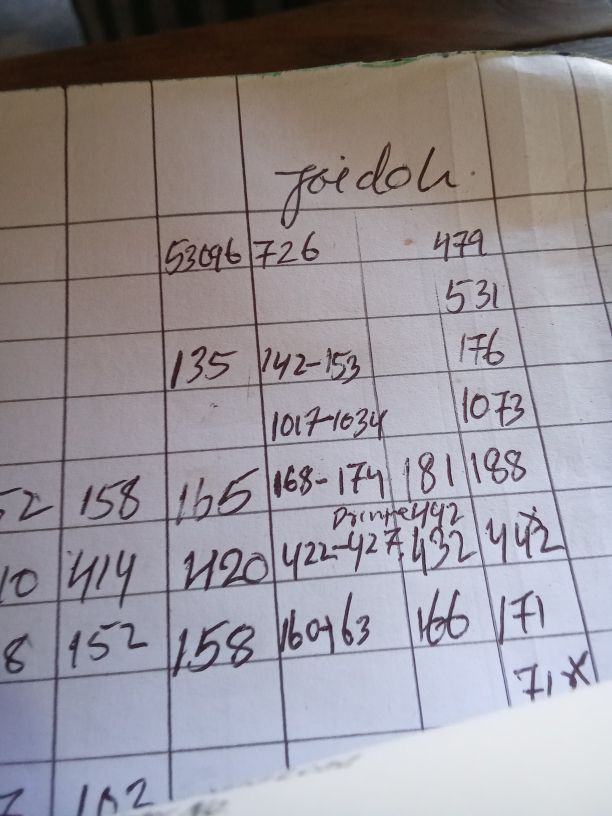 53096 726 479
531
135 142-153 176
1017-1034 1073
52 158 165 168-174 181 188
442
10 414 420 422-427 432 442
8 152 158 160-163 166 171
71x